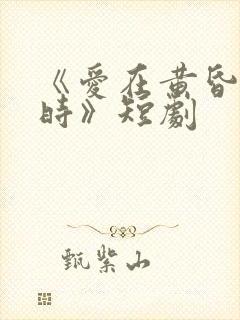 《愛在黄昏
時》短劇
甄紫山